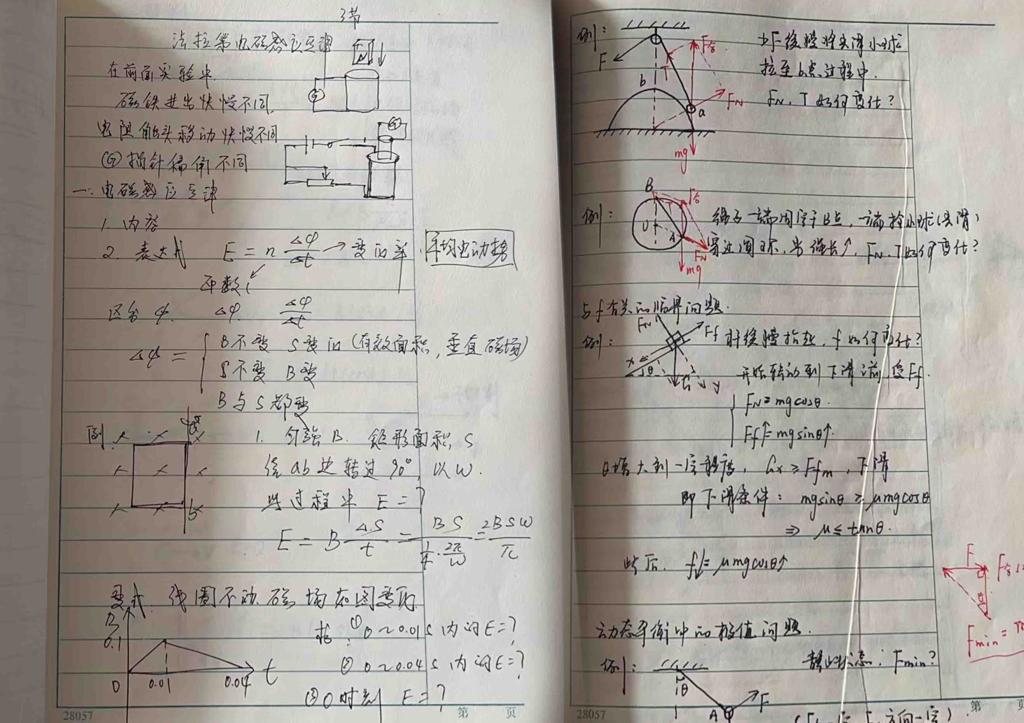 3节
法拉第电磁感应定律
在前面实验中
磁铁进出快慢不同
电阻触头移动快慢不同
G 指针偏角不同
一.电磁感应定律
1. 内容
2. 表达式 E = n Δφ/Δt → 变化率 平均电动势
匝数
区分 φ. Δφ Δφ/Δt
Δφ = { B不变 S变化(有效面积,垂直磁场)
S不变 B变
B与S都变
例
1. 匀强B. 矩形面积S
绕ab边转过90° 以ω.
此过程中 E=?
E = B ΔS/t = BS/(1/4·2π/ω) = 2BSω/π
变式. 线圈不动 磁场如图变化
求 ① 0~0.01s 内的E=?
② 0~0.04s 内的E=?
③ 0时刻 E=?
B
0.1
0 0.01 0.04 t
28057 第 页
例:
以F缓慢将光滑小球
拉至b点过程中.
FN、T如何变化?
F T F合 FN a b mg
例:
绳子一端固定于B点,一端拴小球(光滑)
穿过圆环,当绳长↑,FN、T如何变化?
B F合 O A FN mg
与f有关的临界问题.
例:
斜面缓慢抬起,f如何变化?
开始转动到下滑前 受Ff.
FN Ff x θ G y
FN=mgcosθ.
Ff↑=mgsinθ↑.
θ增大到一定程度, Gx≥Ffm, 下滑
即下滑条件: mgsinθ≥μmgcosθ
⇒ μ≤tanθ.
此后. f↓=μmgcosθ↑
动态平衡中的极值问题.
例:
静止状态: Fmin?
θ A F
F F合
Fmin=
28057 第 页